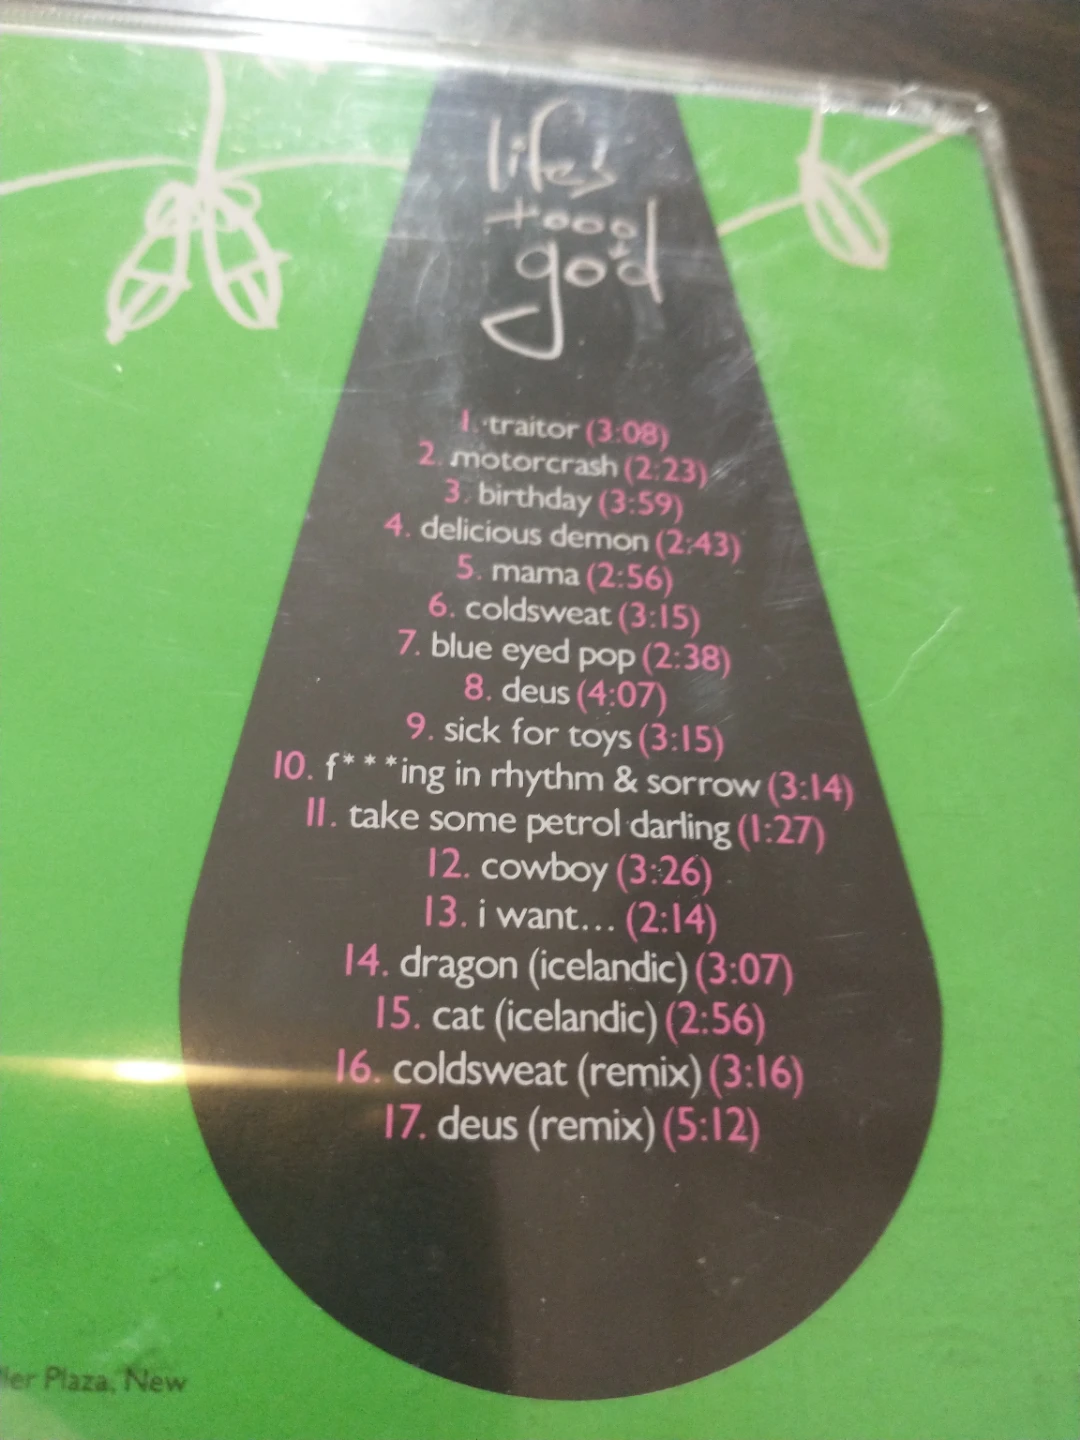 life's
tooo
good
1. traitor (3:08)
2. motorcrash (2:23)
3. birthday (3:59)
4. delicious demon (2:43)
5. mama (2:56)
6. coldsweat (3:15)
7. blue eyed pop (2:38)
8. deus (4:07)
9. sick for toys (3:15)
10. f***ing in rhythm & sorrow (3:14)
11. take some petrol darling (1:27)
12. cowboy (3:26)
13. i want... (2:14)
14. dragon (icelandic) (3:07)
15. cat (icelandic) (2:56)
16. coldsweat (remix) (3:16)
17. deus (remix) (5:12)
Plaza, New